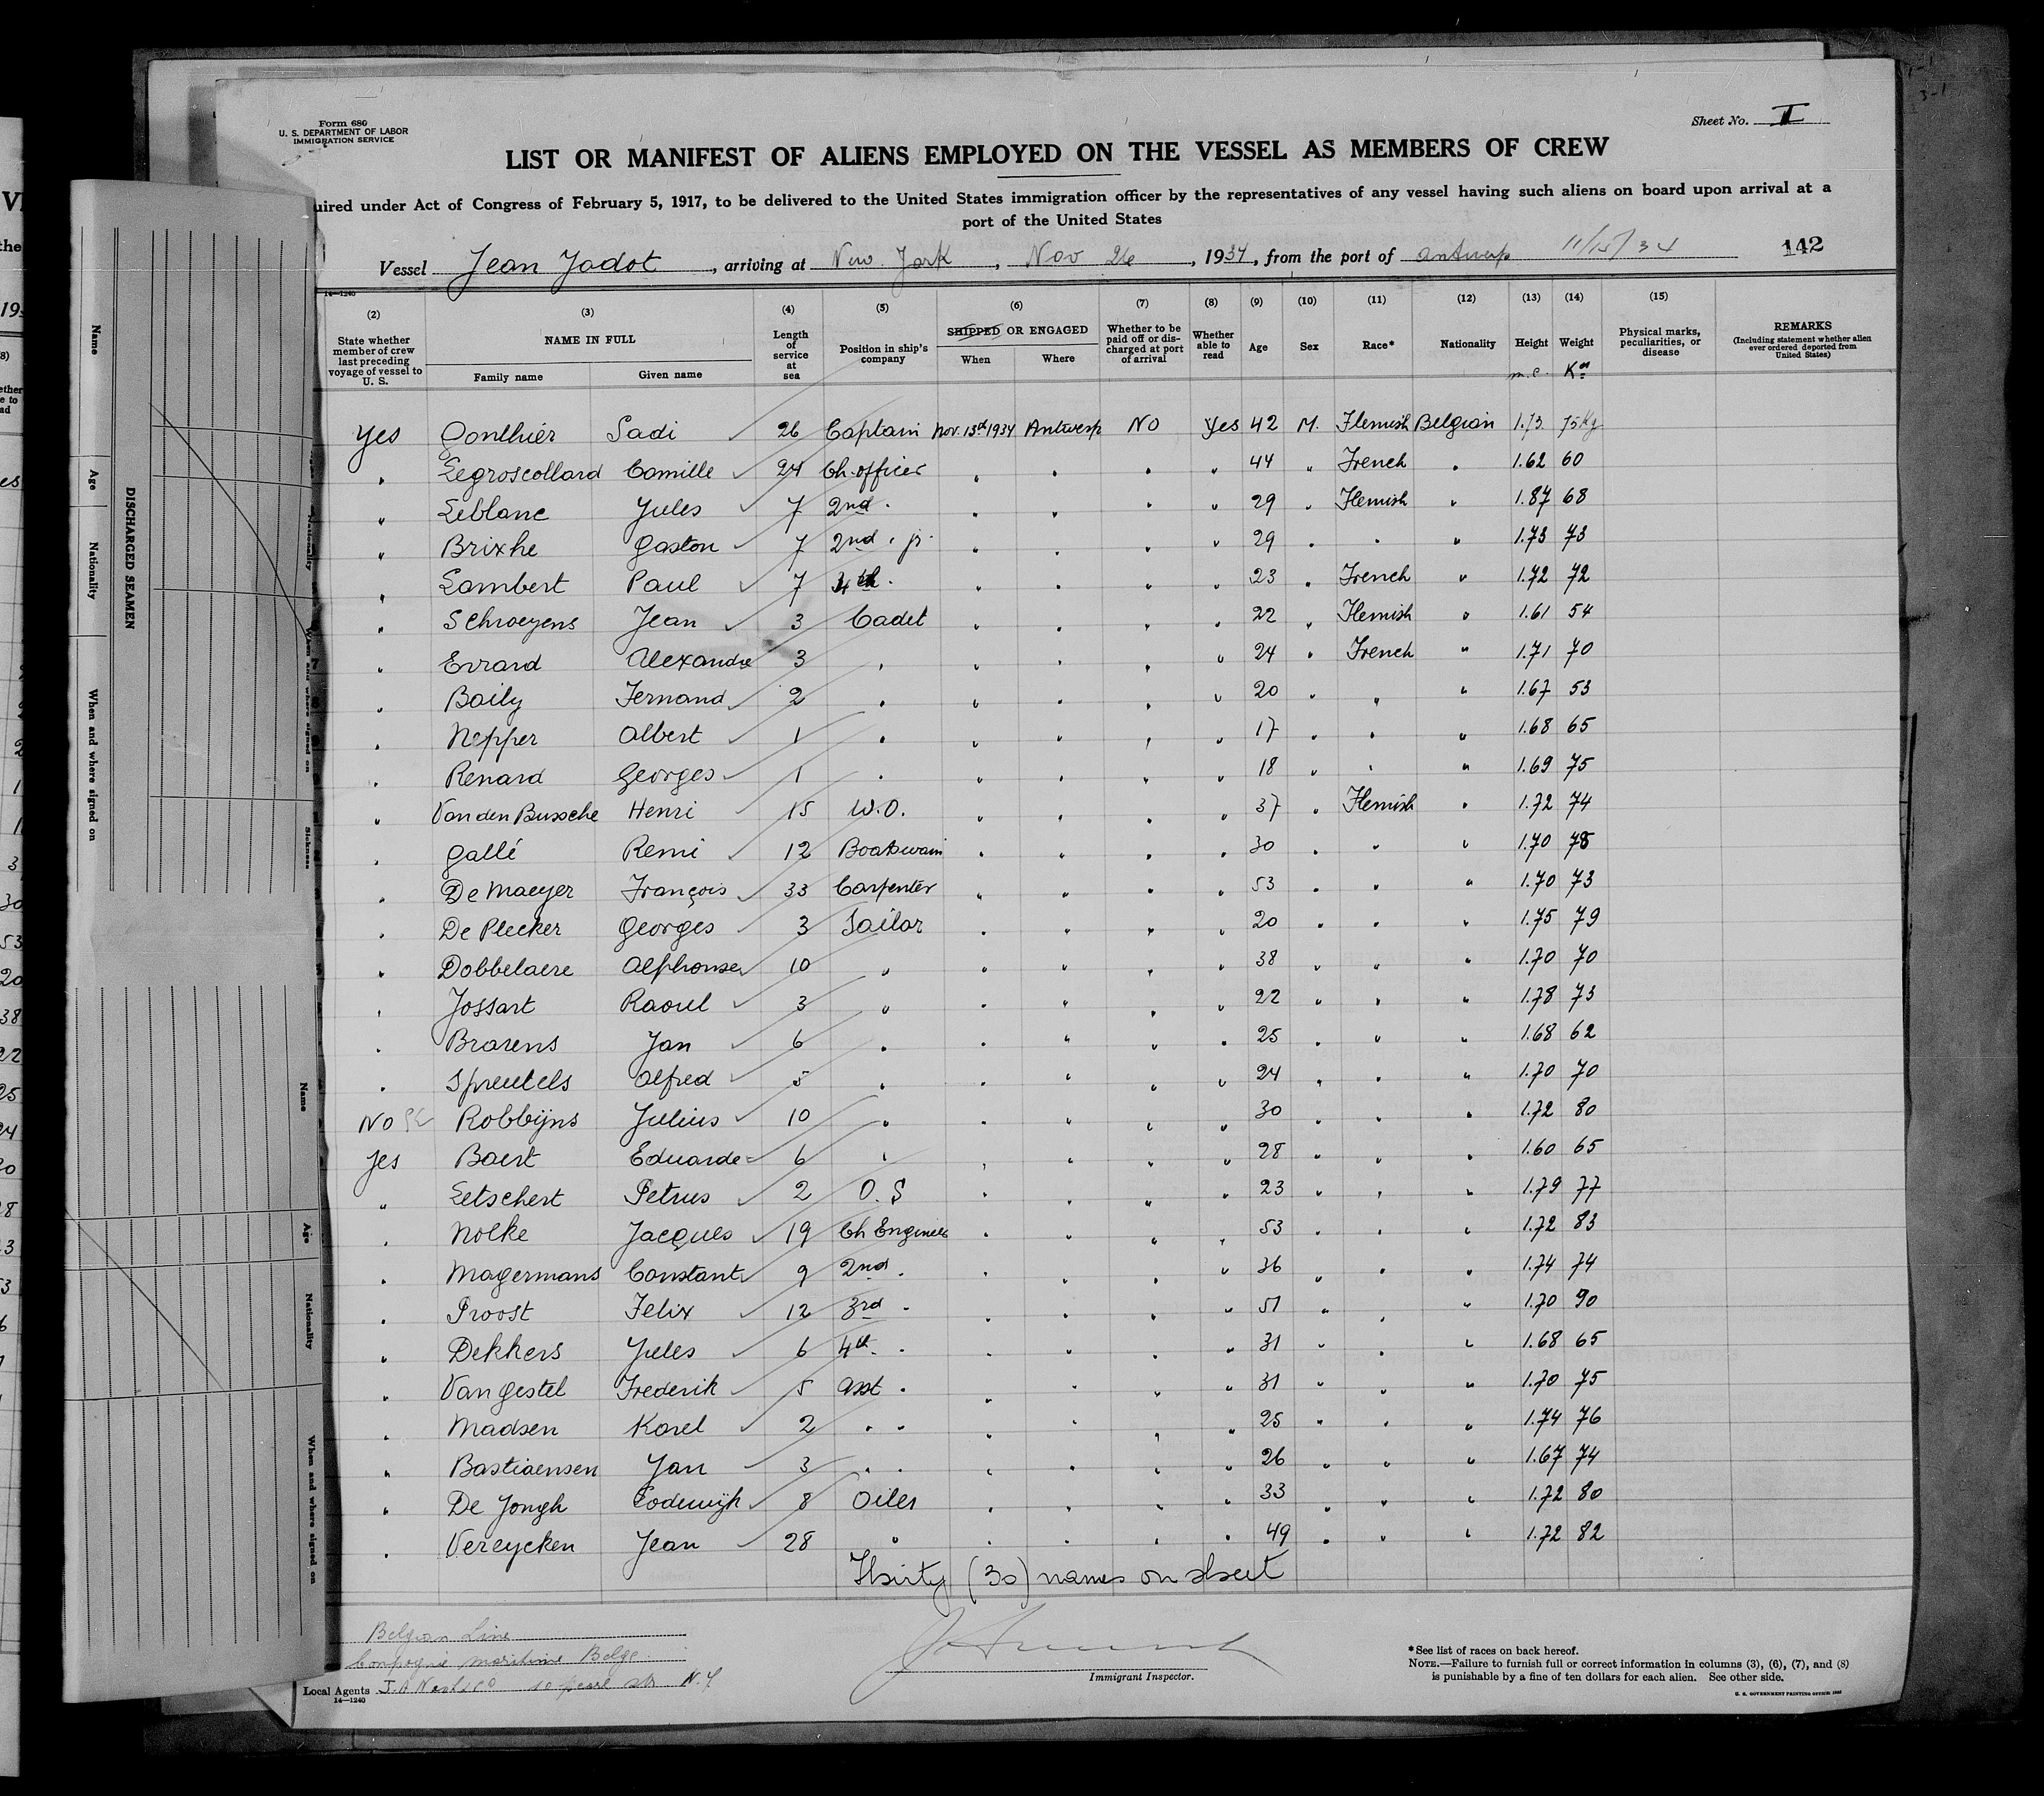 Form 680
U. S. DEPARTMENT OF LABOR
IMMIGRATION SERVICE
Sheet No. I
LIST OR MANIFEST OF ALIENS EMPLOYED ON THE VESSEL AS MEMBERS OF CREW
uired under Act of Congress of February 5, 1917, to be delivered to the United States immigration officer by the representatives of any vessel having such aliens on board upon arrival at a
port of the United States
Vessel Jean Jadot, arriving at New York, Nov 26, 1934, from the port of Antwerp 11/15/34 142
14—1240
(2) (3) (4) (5) (6) (7) (8) (9) (10) (11) (12) (13) (14) (15)
State whether member of crew last preceding voyage of vessel to U. S. NAME IN FULL Family name Given name Length of service at sea Position in ship's company SHIPPED OR ENGAGED When Where Whether to be paid off or discharged at port of arrival Whether able to read Age Sex Race* Nationality Height Weight Physical marks, peculiarities, or disease REMARKS (Including statement whether alien ever ordered deported from United States)
m.c. Kos
Yes Gonthier Sadi 26 Captain Nov. 13th 1934 Antwerp No Yes 42 M. Flemish Belgian 1.73 75 Kg
" Legroscollard Camille 24 Ch. officer " " " " 44 " French " 1.62 60
" Leblanc Jules 7 2nd " " " " " 29 " Flemish " 1.87 68
" Brixhe Gaston 7 2nd " jr. " " " " 29 " " " 1.73 73
" Lambert Paul 7 4th " " " " " 23 " French " 1.72 72
" Schroeyens Jean 3 Cadet " " " " 22 " Flemish " 1.61 54
" Evrard Alexandre 3 " " " " " 24 " French " 1.71 70
" Baily Fernand 2 " " " " " 20 " " " 1.67 53
" Nepper Albert 1 " " " " " 17 " " " 1.68 65
" Renard Georges 1 " " " " " 18 " " " 1.69 75
" Van den Bussche Henri 15 W.O. " " " " 37 " Flemish " 1.72 74
" Gallé Remi 12 Boatswain " " " " 30 " " " 1.70 78
" De Maeyer François 33 Carpenter " " " " 53 " " " 1.70 73
" De Plecker Georges 3 Sailor " " " " 20 " " " 1.75 79
" Dobbelaere Alphonse 10 " " " " " 38 " " " 1.70 70
" Jossart Raoul 3 " " " " " 22 " " " 1.78 73
" Brarens Jan 6 " " " " " 25 " " " 1.68 62
" Spreutels Alfred 5 " " " " " 24 " " " 1.70 70
No Robbijns Julius 10 " " " " " 30 " " " 1.72 80
Yes Baert Eduarde 6 " " " " " 28 " " " 1.60 65
" Letschert Petrus 2 O.S " " " " 23 " " " 1.79 77
" Nolke Jacques 19 Ch Engineer " " " " 53 " " " 1.72 83
" Magermans Constant 9 2nd " " " " " 36 " " " 1.74 74
" Proost Felix 12 3rd " " " " " 51 " " " 1.70 90
" Dekkers Jules 6 4th " " " " " 31 " " " 1.68 65
" Van Gestel Frederik 5 Asst " " " " " 31 " " " 1.70 75
" Madsen Karel 2 " " " " " " 25 " " " 1.74 76
" Bastiaensen Jan 3 " " " " " " 26 " " " 1.67 74
" De Jongh Lodewijk 8 Oiler " " " " 33 " " " 1.72 80
" Vereycken Jean 28 " " " " " 49 " " " 1.72 82
Thirty (30) names on sheet
Belgian Line
Compagnie maritime Belge
Local Agents J. A. Nash & Co 10 pearl str N.Y
14—1240
Immigrant Inspector.
*See list of races on back hereof.
NOTE.—Failure to furnish full or correct information in columns (3), (6), (7), and (8)
is punishable by a fine of ten dollars for each alien. See other side.
U. S. GOVERNMENT PRINTING OFFICE
DISCHARGED SEAMEN
Name
Age
Nationality
When and where signed on
Sickness
Name
Age
Nationality
When and where signed on